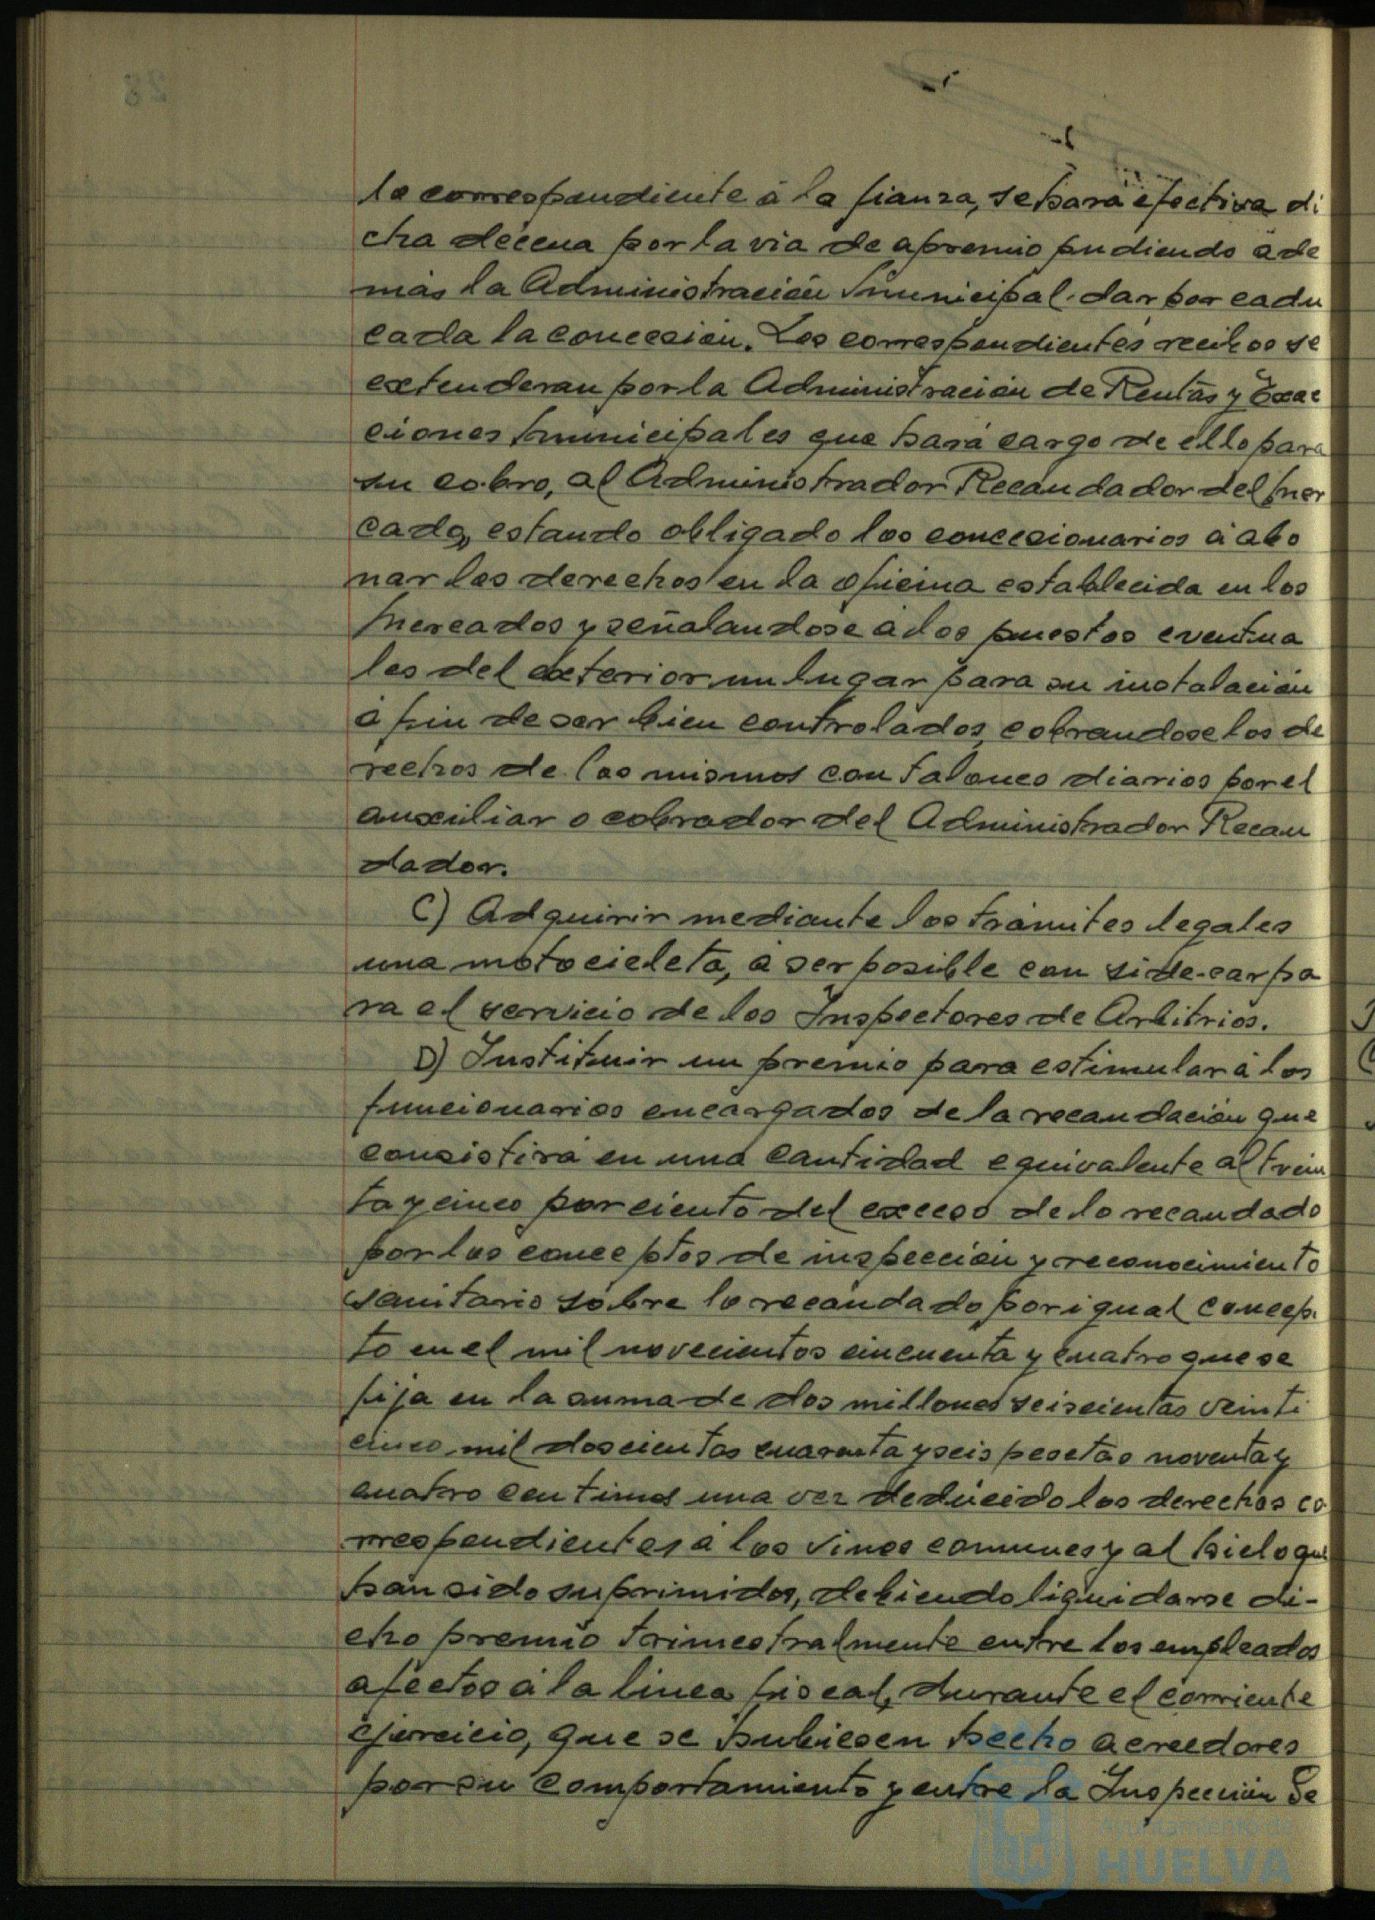 la correspondiente á la fianza, se hará efectiva di
cha décena por la via de apremio pudiendo ade
más la Administración Municipal dar por cadu
cada la concesión. Los correspondientes recibos se
extenderan por la Administración de Rentas y Exac
ciones Municipales que hará cargo de ello para
su cobro, al Administrador Recaudador del Mer
cado, estando obligado los concesionarios á abo
nar los derechos en la oficina establecida en los
Mercados y señalandose á los puestos eventua
les del exterior un lugar para su instalación
á fin de ser bien controlados, cobrandose los de
rechos de los mismos con talones diarios por el
auxiliar o cobrador del Administrador Recau
dador.
C) Adquirir mediante los trámites legales
una motocicleta, a ser posible con side-car pa
ra el servicio de los Inspectores de Arbitrios.
D) Instituir un premio para estimular á los
funcionarios encargados de la recaudación que
consistirá en una cantidad equivalente al trein
ta y cinco por ciento del exceso de lo recaudado
por los conceptos de inspección y reconocimiento
sanitario sobre lo recaudado por igual concep.
to en el mil novecientos cincuenta y cuatro que se
fija en la suma de dos millones seiscientas veinti
cinco mil doscientas cuarenta y seis pesetas noventa y
cuatro centimos una vez deducido los derechos co
rrespondientes á los vinos comunes y al hielo que
han sido suprimidos, debiendo liquidarse di-
cho premio trimestralmente entre los empleados
afectos á la linea fiscal, durante el corriente
ejercicio, que se hubiesen hecho acreedores
por su comportamiento y entre la Inspección Se
Ayuntamiento de
HUELVA
28